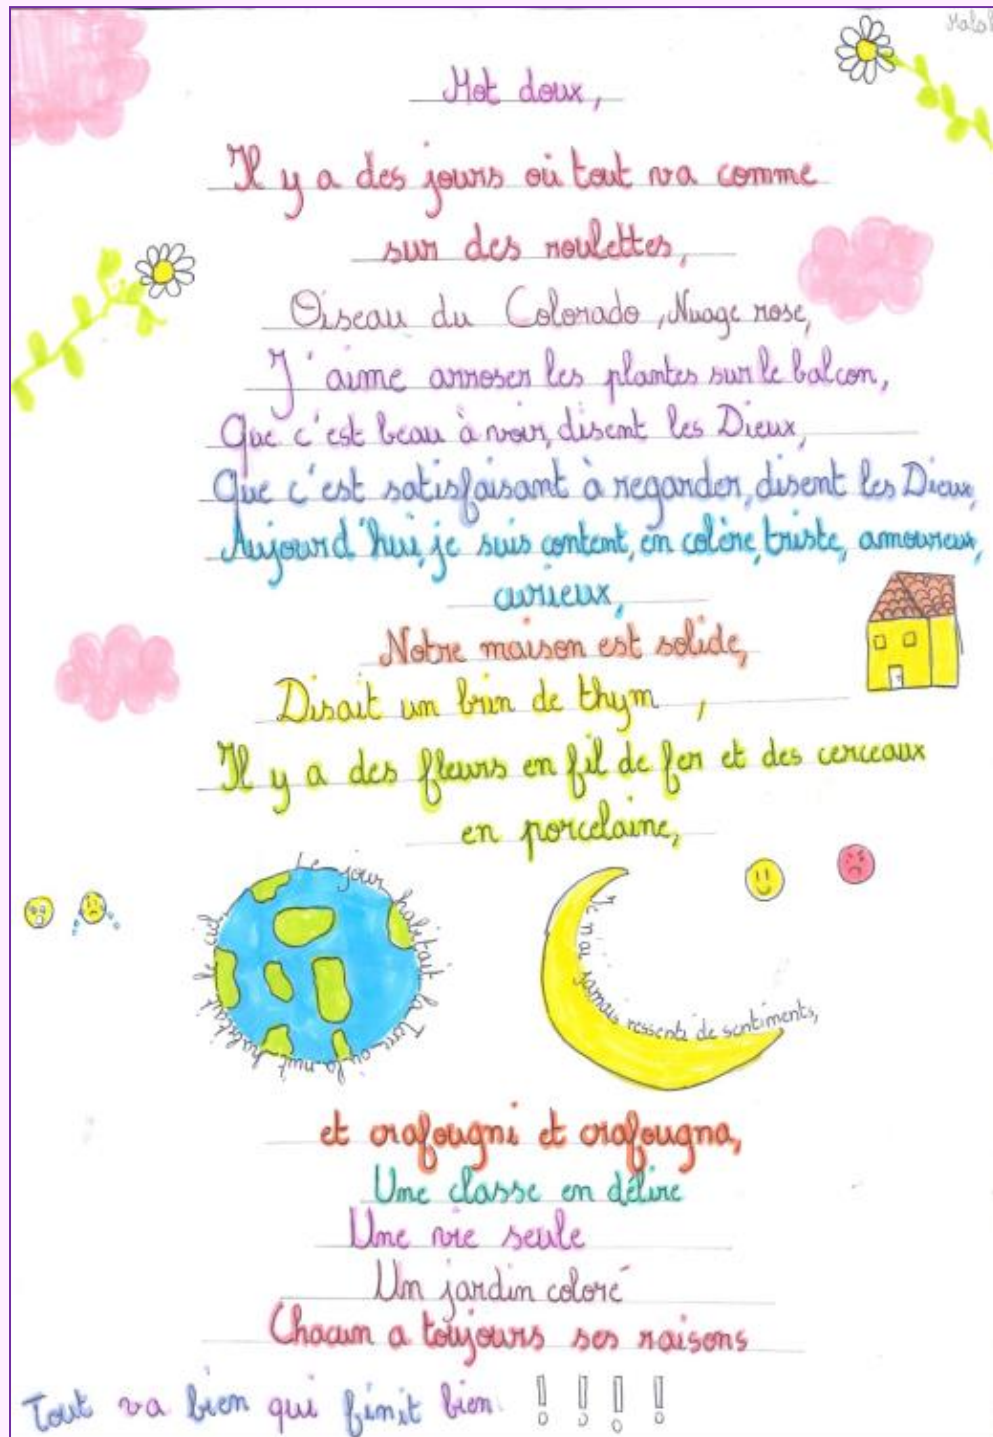 Mot doux,
Il y a des jours où tout va comme
sur des roulettes,
Oiseau du Colorado, Nuage rose,
J'aime arroser les plantes sur le balcon,
Que c'est beau à voir, disent les Dieux,
Que c'est satisfaisant à regarder, disent les Dieux,
Aujourd'hui, je suis content, en colère, triste, amoureux,
curieux,
Notre maison est solide,
Disait un brin de thym ,
Il y a des fleurs en fil de fer et des cerceaux
en porcelaine,
Le jour habitait la Terre où la nuit habitait le ciel,
Je n'ai jamais ressenti de sentiments,
et crafougni et crafougna,
Une classe en délire
Une vie seule
Un jardin coloré
Chacun a toujours ses raisons
Tout va bien qui finit bien !!!!